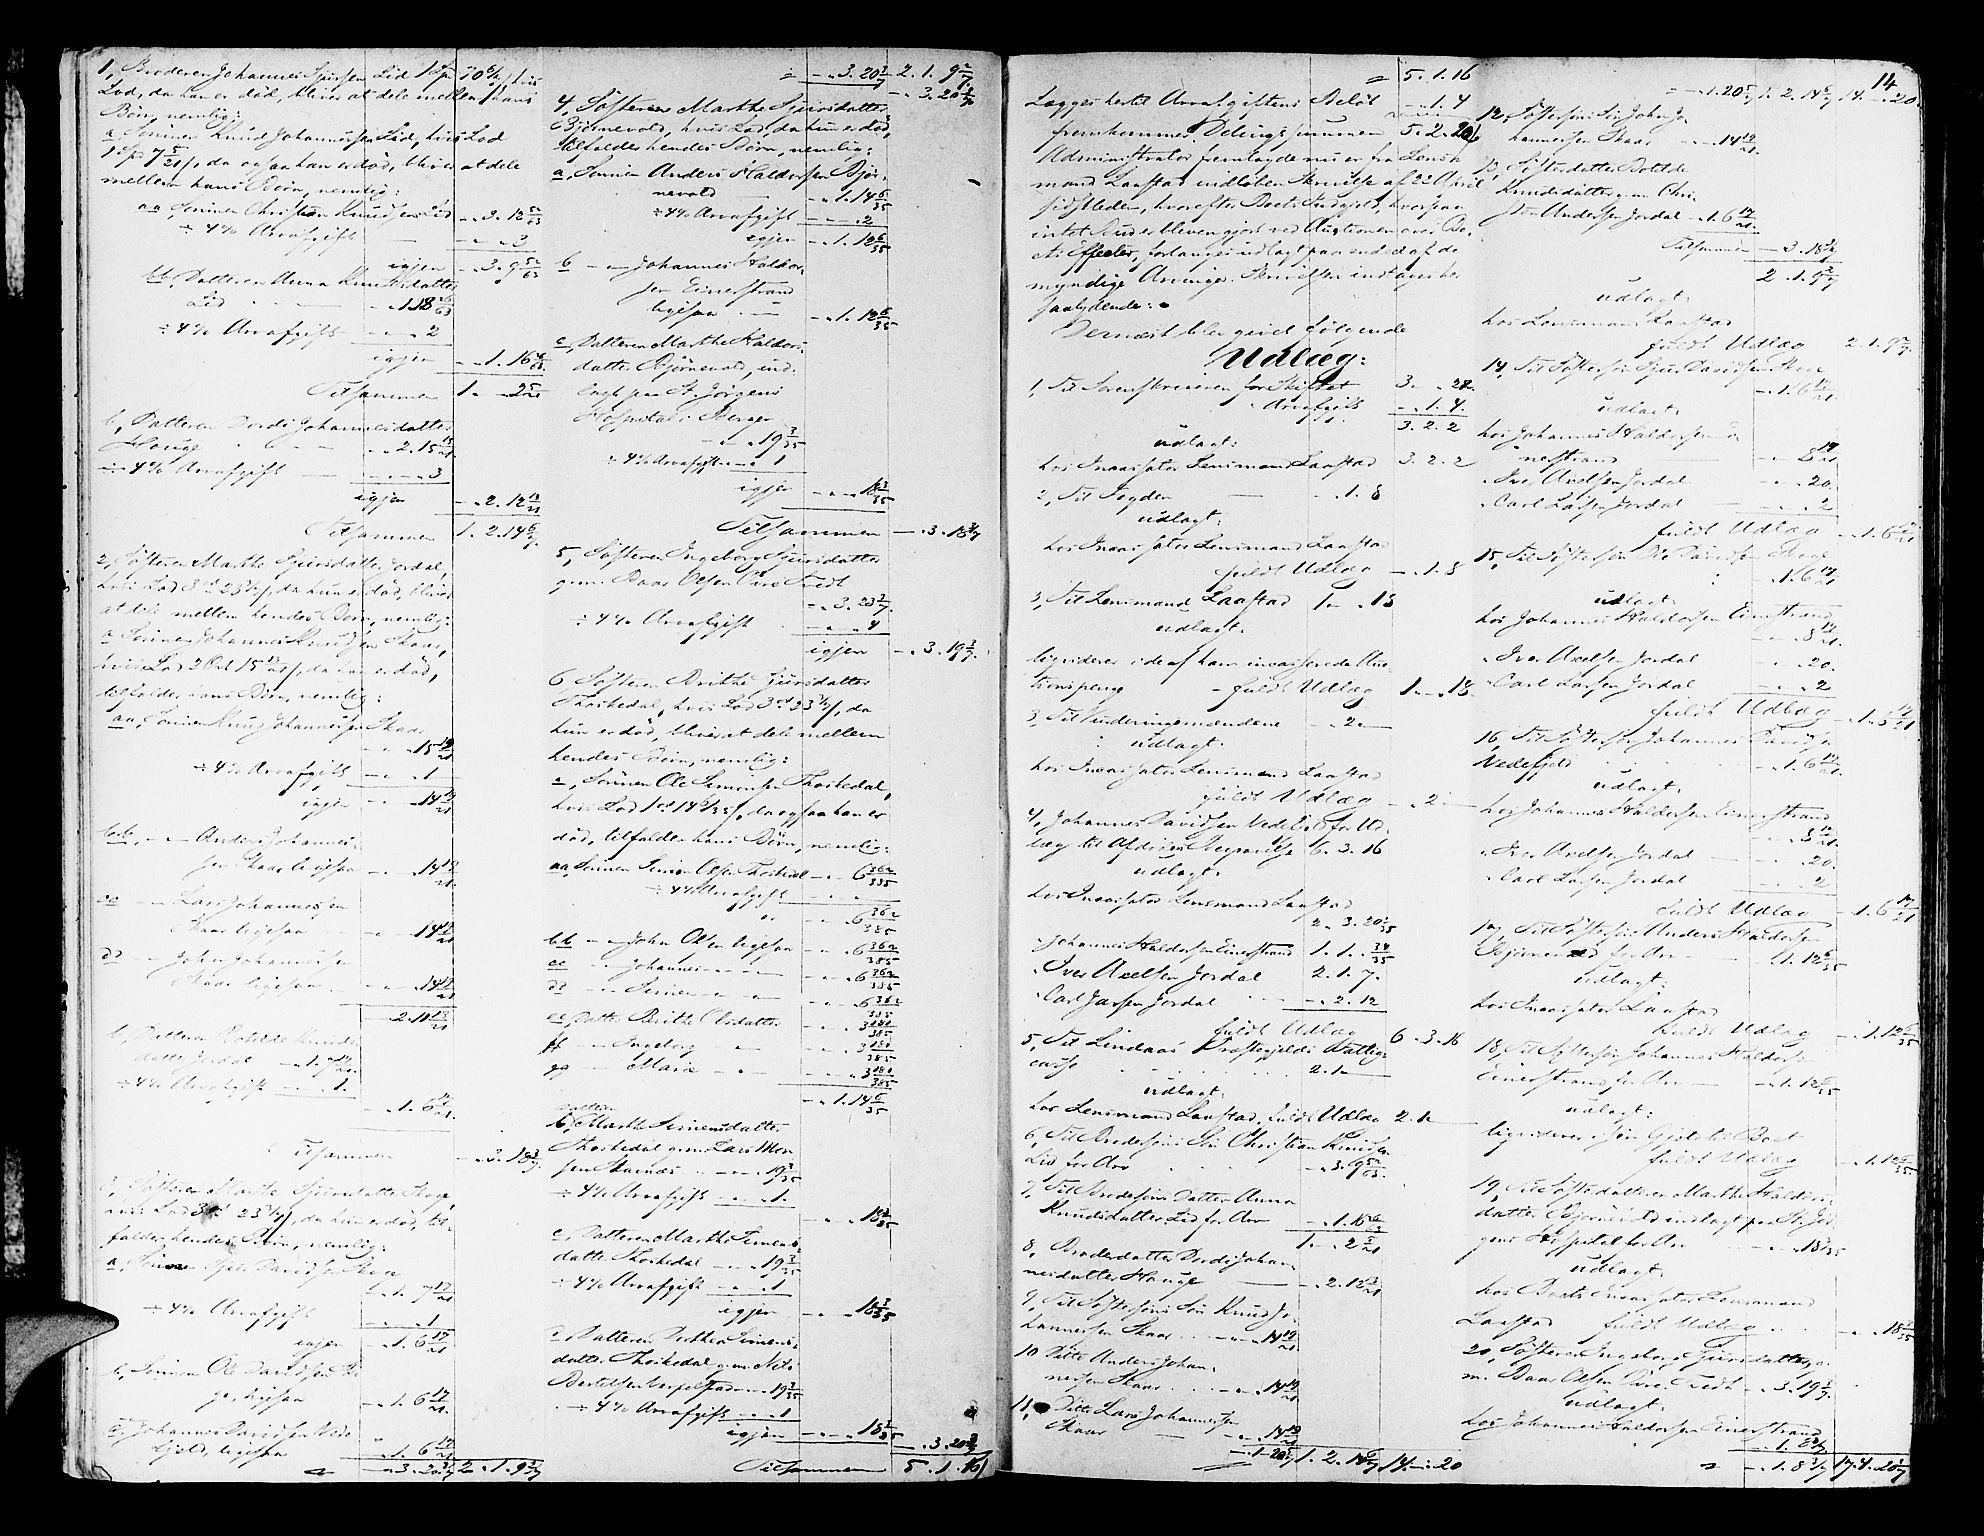 1, Broderen Johannes Sjursen Lid 1 Sp 70 6/7 s, hvis
Lod, da han er död, bliver at dele mellem hans
Börn, nemlig:
a, Sönnen Knud Johannessen Lid, hvis Lod
1 Sp 7 5/21 s, da ogsaa han er död, bliver at dele
mellem hans Börn, nemlig:
aa, Sönnen Christian Knudsen Lid - „ 3. 12 52/63
÷ 4% Arvafgift - „ „ 3
igjen - „ 3. 9 52/63
bb, Datteren Anna Knudsdatter
Lid - „ 1. 18
÷ 4% Arvafgift - „ „ 2
igjen - „ 1. 16
Tilsammen 1 „ 2 5/21
b, Datteren Dordi Johannesdatter
Hauge - „ 2. 15 13/21
÷ 4% Arvafgift - „ „ 3
igjen - „ 2. 12 13/21
Tilsammen 1. 2. 14 6/7
2, Søsteren Marthe Sjursdatter Jordal,
hvis Lod 3 ort 23 3/7 s, da hun er död, bliver
at dele mellem hendes Börn, nemlig:
a Sönnen Johannes Knudsen Skaar,
hvis Lod 2 Ort 15 13/21 s, da han er död,
tilfalder hans Börn, nemlig:
aa, Sönnen Knud Johannessen Skaar
- „ „ 15
÷ 4% Arvafgift - „ „ 1
igjen - „ „ 14 19/21
bb, - „ - Anders Johannes-
sen Skaar ligesaa - „ „ 14 19/21
cc - „ - Lars Johannessen
Skaar ligesaa - „ „ 14 19/21
dd - „ - John Johannessen
Skaar ligesaa - „ „ 14 19/21
- 2. 11 13/21
b, Datteren Botilde Knuds-
datter Jordal - „ 1. 7 17/21
÷ 4% Arvafgift - „ „ 1.
- „ 1. 6 17/21
Tilsammen - „ 3. 18 3/7
3, Søsteren Marthe Sjursdatter Skage,
hvis Lod 3 ort 23 3/7 s, da hun er död, til-
falder hendes Börn, nemlig:
a, Sönnen Sjur Davidsen Skage
- „ 1. 7 17/21
÷ 4% Arvafgift - „ „ 1
igjen - „ 1. 6 17/21
b, Sönnen Ole Davidsen Ska-
ge, ligesaa - „ 1. 6 17/21
c, Johannes Davidsen Vede-
fjeld, ligesaa - „ 1. 6 17/21
= - „ 3. 20 3/7 2. 1. 9 2/7
= - „ 3. 20 3/7 2. 1. 9 2/7
- „ 3. 20 3/7
4, Søsteren Marthe Sjursdatter
Bjørnevold, hvis Lod, da hun er död,
tilfalder hendes Börn, nemlig:
a, Sönnen Anders Haldorsen Bjør-
nevold - „ 1. 14 6/35
÷ 4% Arvafgift - „ „ 2
igjen - „ 1. 12 6/35
b - „ - Johannes Haldor-
sen Einerstrand
ligesaa - „ 1. 12 6/35
c, Datteren Marthe Haldors-
datter Bjørnevold, ind-
lagt paa St. Jörgens
Hospital i Bergen
- „ „ 19 3/35
÷ 4% Arvafgift - „ „ 1
igjen - „ „ 18 3/35
Tilsammen - „ 3. 18 3/7
5, Søsteren Ingeborg Sjursdatter
gm. Baar Olsen Øvre Tvedt
- „ 3. 23 3/7
÷ 4% Arvafgift - „ „ 4
igjen - „ 3. 19 3/7
6 Søsteren Brithe Sjursdatter
Thoskedal, hvis Lod 3 ort 23 3/7 s, da
hun er död, bliver at dele mellem
hendes Börn, nemlig:
a, Sönnen Ole Simonsen Thoskedal,
hvis Lod 1 ort 14 6/35 s, da ogsaa han er
död, tilfalder hans Börn, nemlig:
aa, Sönnen Simon Olsen Thoskedal - „ „ 6 362/385
÷ 4% Arvafgift - „ „ „
er - „ „ 6 362/385
bb - „ - John Olsen ligesaa - „ „ 6 362/385
cc - „ - Johannes - „ - - „ „ 6 362/385
dd - „ - Simen - „ - - „ „ 6 362/385
ee, Datter Brithe Olsdatter - „ „ 3 181/385
ff - „ - Ingeborg - „ - - „ „ 3 181/385
gg - „ - Maria - „ - - „ „ 3 181/385
- „ 1. 14 6/35
Datteren
b, Marthe Simensdatter
Thoskedal gm. Lars Mon-
sen - „ „ 19 3/35
÷ 4% Arvafgift - „ „ 1.
- „ „ 18 3/35
c, Datteren Marthe Simens-
datter Thoskedal - „ „ 19 3/35
÷ 4% Arvafgift - „ „ 1
igjen - „ „ 18 3/35
d, Datteren Dorthea Simens-
datter Thoskedal gm. Nils
Bertelsen - „ „ 19 3/35
÷ 4% Arvafgift - „ „ 1
igjen - „ „ 18 3/35
- „ 3. 20 3/7
Tilsammen 5. 1. 16
= 5. 1. 16
Lægges hertil Arvafgiftens Belöb - „ 1. 4
fremkommer Delingssummen 5. 2. 20
Administrator fremlagde nu en fra Lens-
mand Laastad indløben Skrivelse af 22 April
sidstleden, hvorefter Boets Indgjeld, hvorpaa
intet Bud er bleven gjort ved Auctionen over Bo-
ets Effecter, forlanges udlagt paa en del af de
myndige Arvinger. Skrivelsen indtages her
saalydende: -
Dernæst blev givet følgende
Udlæg:
1, Til Sorenskriveren for Skiftet 3. „ 22.
„ Arvafgift - „ 1. 4.
3. 2. 2
udlagt:
hos Incassator Lensmand Laastad 3. 2. 2
2, Til Fogden - „ 1. 8
udlagt:
hos Incassator Lensmand Laastad
fuldt Udlæg - „ 1. 8
3, Til Lensmand Laastad 1 „ „ 18
udlagt:
liqviderer i de af ham incasserede Auc-
tionspenge - fuldt Udlæg 1 „ „ 18
3, Til Vurderingsmændene - „ 2 „
udlagt:
hos Incassator Lensmand Laastad
fuldt Udlæg - „ 2 „
4, Johannes Davidsen Vedefjeld for Ud-
læg til Afdödes Begravelse 6. 3. 16
udlagt:
hos Incassator Lensmand Laastad
2. 3. 20 1/35
„ Johannes Haldorsen Einerstrand 1. 1. „ 34/35
„ Iver Axelsen Jordal 2. 1. 7.
„ Carl Larsen Jordal - „ 2. 12
fuldt Udlæg 6. 3. 16
5, Til Lindaas Præstegjelds Fattig-
casse 2. 1 „
udlagt:
hos Lensmand Laastad, fuldt Udlæg 2. 1 „
6, Til Brodersöns Sön Christian Knudsen
Lid for Arv - „ 3. 9 52/63
7, Til Brodersöns Datter Anna
Knudsdatter Lid for Arv - „ 1. 16
1 „ 2 5/21
8, Broderdatter Dordi Johan-
nesdatter Hauge - „ 2. 12 13/21
9, Til Søstersöns Sön Knud Jo-
hannessen Skaar - „ „ 14 19/21
10 Ditto Anders Johan-
nessen Skaar - „ „ 14 19/21
11, Ditto Lars Johannessen
Skaar - „ „ 14 19/21
- „ 1. 20 5/7 1. 2. 14 6/7 14. „ 20
14
= - „ 1. 20 5/7 1. 2. 14 6/7 14. „ 20
12, Søstersöns Sön John Jo-
hannessen Skaar - „ „ 14 19/21
13, Søsterdatter Botilde
Knudsdatter gm. Chri-
sten Andersen Jordal - „ 1. 6 17/21
Tilsammen - „ 3. 18 3/7
2. 1. 9 2/7
udlagt:
hos Lensmand Laastad
fuldt Udlæg 2. 1. 9 2/7
14, Til Søstersön Sjur Davidsen Skage
- „ 1. 6 17/21
udlagt:
hos Johannes Haldorsen Ei-
nerstrand - „ „ 8 17/21
„ Iver Axelsen Jordal - „ „ 20.
„ Carl Larsen Jordal - „ „ 2
fuldt Udlæg - „ 1. 6 17/21
15, Til Søstersön Ole Davidsen Skage
- „ 1. 6 17/21
udlagt:
hos Johannes Haldorsen Einerstrand
- „ „ 8 17/21
„ Iver Axelsen Jordal - „ „ 20.
„ Carl Larsen Jordal - „ „ 2
fuldt Udlæg - „ 1. 6 17/21
16, Til Søstersön Johannes Davidsen
Vedefjeld - „ 1. 6 17/21
udlagt:
hos Johannes Haldorsen Einerstrand
- „ „ 8 17/21
„ Iver Axelsen Jordal - „ „ 20.
„ Carl Larsen Jordal - „ „ 2
fuldt Udlæg - „ 1. 6 17/21
17, Til Søstersön Anders Haldorsen
Bjørnevold for Arv - „ 1. 12 6/35
udlagt:
hos Incassator Laastad
fuldt Udlæg - „ 1. 12 6/35
18, Til Søstersön Johannes Haldorsen
Einerstrand for Arv - „ 1. 12 6/35
udlagt:
liqviderer i sin Gjeld til Boet
fuldt Udlæg - „ 1. 12 6/35
19, Til Søsterdatteren Marthe Haldors-
datter Bjørnevold indlagt paa St. Jör-
gens Hospital for Arv - „ „ 18 3/35
udlagt:
hos Boets Incassator Lensmand
Laastad fuldt Udlæg - „ „ 18 3/35
20, Søsteren Ingeborg Sjursdatter g.
m. Baar Olsen Øvre Tvedt - „ 3. 19 3/7.
udlagt:
hos Johannes Haldorsen Einerstrand
- „ 1. 8 3/7
= - „ 1. 8 3/7 17. 4. 20 1/7